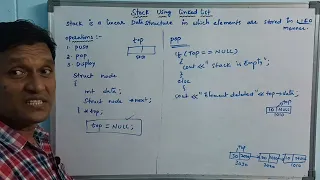 Stack Using Linked List
Stack is a linear Data structure in which elements are stored in LIFO
manner.
operations :-
1. push
2. pop
3. Display
Struct node
{
int data;
Struct node *next;
} *top;
top = NULL;
top
pop
if (top == NULL)
cout << "Stack is Empty";
}
else
{
cout << "Element deleted" << top->data;
top